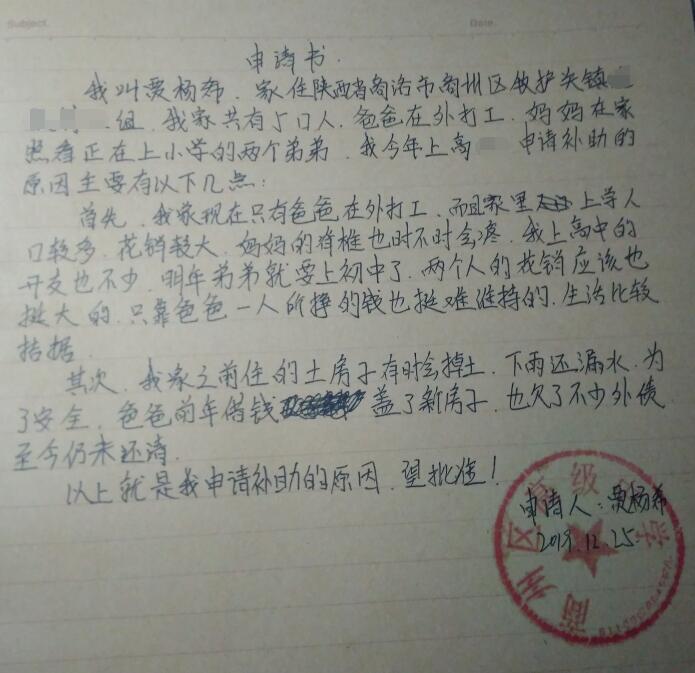 Subject
Date
申请书.
我叫贾杨希. 家住陕西省商洛市商州区牧护关镇
组. 我家共有5口人. 爸爸在外打工. 妈妈在家
照看正在上小学的两个弟弟. 我今年上高 申请补助的
原因主要有以下几点:
首先. 我家现在只有爸爸在外打工. 而且家里 上学人
口较多. 花销较大. 妈妈的脊椎也时不时会疼. 我上高中的
开支也不少. 明年弟弟就要上初中了. 两个人的花销应该也
挺大的. 只靠爸爸一人所挣的钱也挺难维持的. 生活比较
拮据.
其次. 我家之前住的土房子有时会掉土. 下雨还漏水. 为
了安全. 爸爸前年借钱 盖了新房子. 也欠了不少外债.
至今仍未还清.
以上就是我申请补助的原因. 望批准!
申请人: 贾杨希
2019.12.25.
商州区高级中学